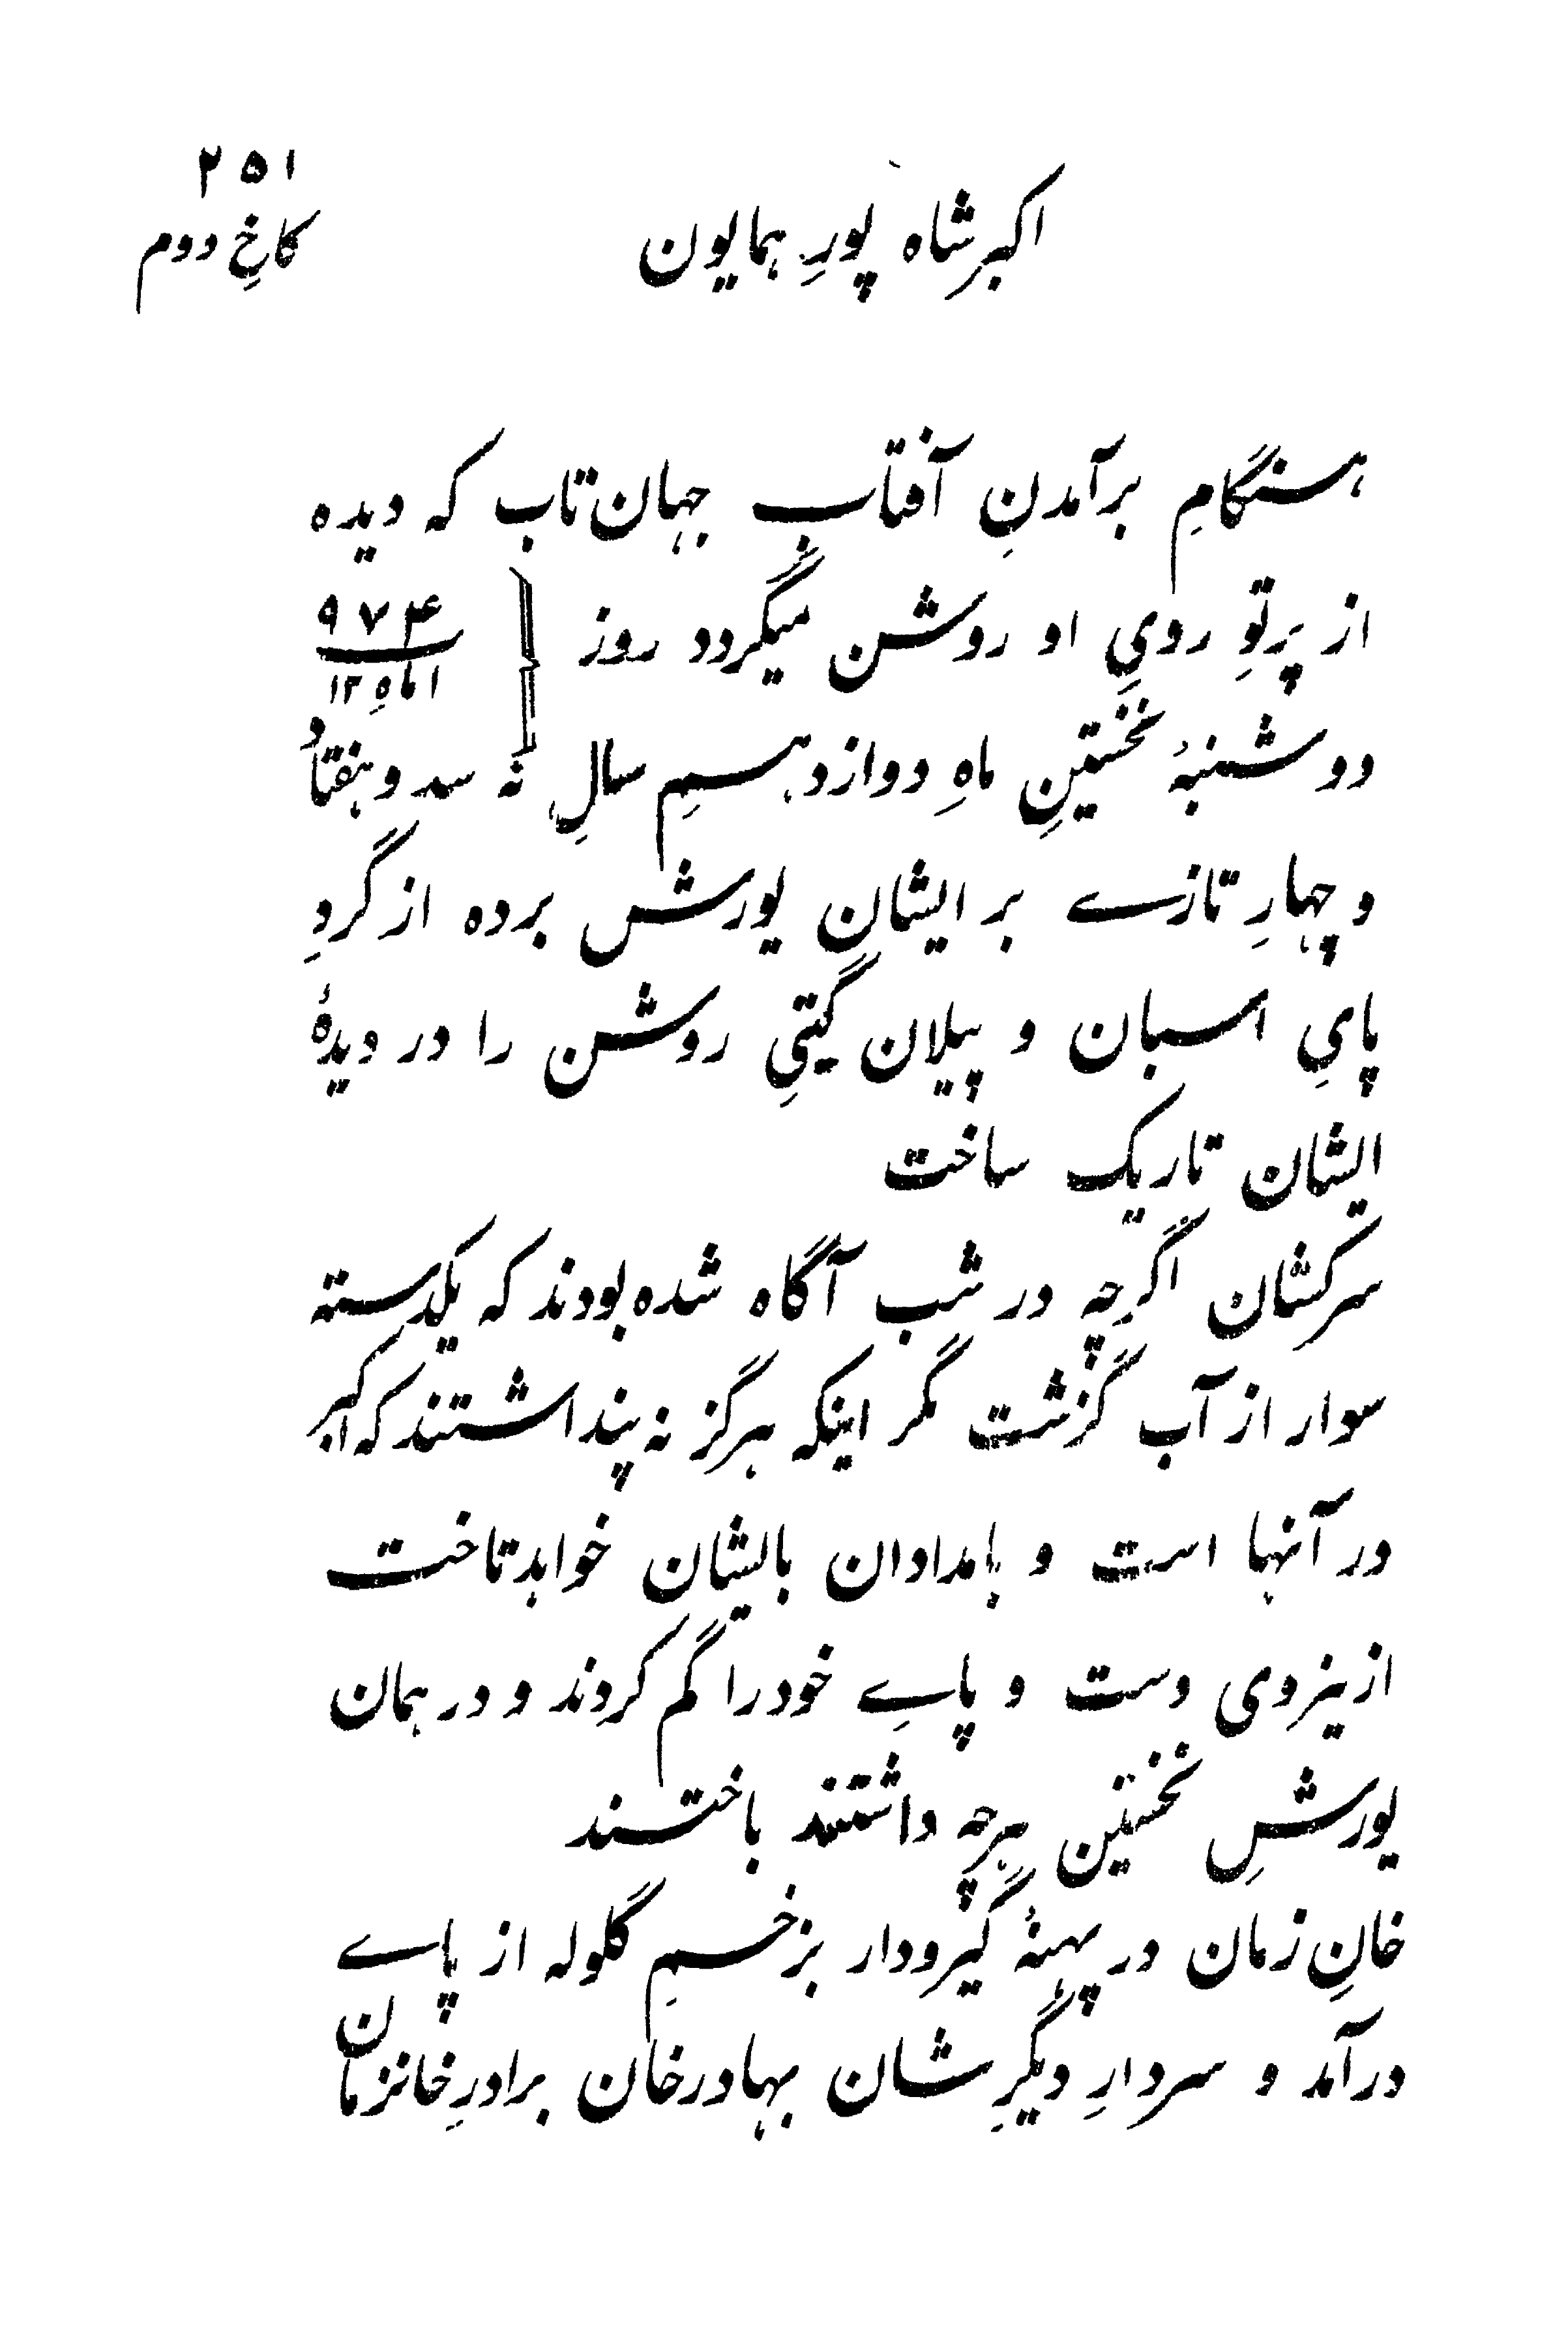 ۲۵۱
کاخِ دوم
اکبر شاه پورِ همایون
هنگامِ برآمدنِ آفتابِ جهان تاب که دیده
از پرتوِ رویِ او روشن میگردد روز
۹۷۴
۱ ماهِ ۱۲
دوشنبهٔ نخستینِ ماهِ دوازدهمِ سالِ نه سد و هفتاد
و چهارِ تازے بر ایشان یورش برده از گردِ
پایِ اسبان و پیلان گیتیِ روشن را در دیدهٔ
ایشان تاریک ساخت
سرکشان اگرچه در شب آگاه شده بودند که یکدسته
سوار از آب گزشت مگر اینکه هرگز نه پنداشتند که اکبر
در آنها است و بامدادان بایشان خواهد تاخت
ازینروی دست و پاے خود را گم کردند و در همان
یورشِ نخستین هرچه داشتند باختند
خانِ زمان در پهنهٔ گیرودار بزخمِ گلوله از پاے
درآمد و سردارِ دیگرِ شان بهادرخان برادرِ خانزمان